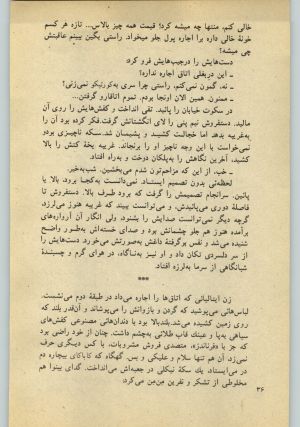 خالی کنم، منتها چه میشه کرد! قیمت همه چیز بالاس... تازه هر کسم
خونهٔ خالی داره برا اجاره پول جلو میخواد. راستی یکین ببینم عاقبتش
چی میشه؟
دست‌هایش را درجیب‌هایش فرو کرد
ـ این دربغلی اتاق اجاره نداره؟
ـ نه، گمون نمی‌کنم، راستی چرا سری به‌کورتیکو نمی‌زنی؟
ـ ممنون. همین الان اونجا بودم. تموم اتاقارو گرفتن...
در سکوت خیابان را پائید. تفی انداخت و کفش‌هایش را روی آن
مالید. دستفروش نیم پنی را لای انگشتانش گرفت. فکر کرده بود آن را
به‌غریبه بدهد اما خجالت کشید و پشیمان شد. سکه ناچیزی بودو
نمی‌خواست با این وجه ناچیز او را برنجاند. غریبه یخهٔ کتش را بالا
کشید، آخرین نگاهش را به‌پلکان دوخت و به‌راه افتاد.
ـ خب. از این که مزاحم‌تون شدم می‌بخشین. شب‌به‌خیر
لحظه‌ئی بدون تصمیم ایستاد. نمی‌دانست به‌کجا برود. بالا یا
پائین. سرانجام تصمیمش را گرفت که برود طرف بالا. دستفروش تا
فاصلهٔ دوری می‌پائیدش، و می‌توانست ببیند که غریبه هنوز می‌لرزد.
گرچه دیگر نمی‌توانست صدایش را بشنود، ولی انگار آن آرواره‌های
برآمده هنوز هم جلو چشمانش بود و صدای خسته‌اش به‌طور واضح
شنیده می‌شد و نفس برگرفتهٔ داغش به‌صورتش می‌خورد. دست‌هایش را
از سر دلسردی تکان داد و او نیز به‌ناگاه، در هوای گرم و چسبندهٔ
شبانگاهی از سرما به‌لرزه افتاد.
***
زن ایتالیائی که اتاق‌ها را اجاره می‌داد در طبقهٔ دوم می‌نشست.
لباس‌هائی می‌پوشید که گردن و بازوانش را می‌پوشاند و آن‌قدر بلند که
روی زمین کشیده می‌شد. بلندبالا بود با دندان‌هائی مصنوعی کفش‌های
سیاهی به‌پا و عینک قاب طلائی به‌چشم داشت. چنان از خود راضی بود
که جز با «فرناندز»، متصدی فروش مشروبات، با کس دیگری حرف
نمی‌زد، آن هم تنها سلام و علیکی و بس. گهگاه که کاباکای بیچاره دم
در می‌ایستاد، یک سکهٔ نیکلی در جعبه‌اش می‌انداخت. گدای بینوا هم
مخلوطی از تشکر و نفرین مِن‌مِن می‌کرد:
۳۶